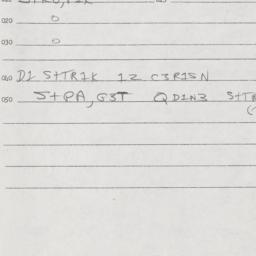 020 0
030 0
040 D1 S+TR1K 12 C3R1SN
050 S+PA,G3T QD1N3 S+TR